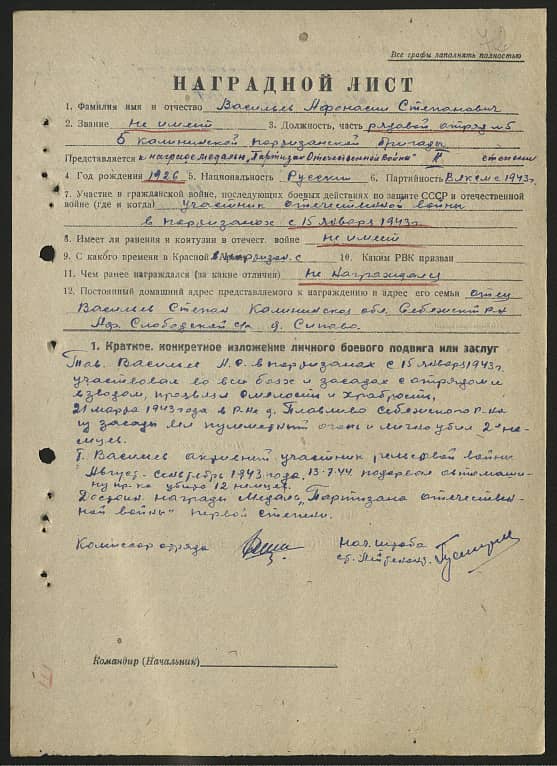 Все графы заполнять полностью
НАГРАДНОЙ ЛИСТ
1. Фамилия имя и отчество Васильев Афонасии Степанович
2. Звание не имеет 3. Должность, часть рядовой, отряд №5
5 Калининской партизанской бригады
Представляется к награде медалью "Партизан Отечественной Войны" степени
4. Год рождения 1926 5. Национальность Русский 6. Партийность ВЛКСМ с 1943г.
7. Участие в гражданской войне, последующих боевых действиях по защите СССР и отечественной
войне (где и когда) участник отечественной войны
в партизанах с 15 января 1943г.
8. Имеет ли ранения и контузии в отечест. войне не имеет
9. С какого времени в Красной Армии в партизан. с 10. Каким РВК призван
11. Чем ранее награждался (за какие отличия) Не Награждался
12. Постоянный домашний адрес представляемого к награждению и адрес его семьи отец
Васильев Степан Калининская обл. Себежский р-н
Слободской с/с д.
1. Краткое, конкретное изложение личного боевого подвига или заслуг
Тов. Васильев А.С. в партизанах с 15 января 1943г.
участвовал во всех боях и засадах с отрядом и
взводом, проявлял смелость и храбрость,
21 марта 1943 года в р-не д. Себежского р-на
из засады вел пулеметный огонь и лично убил 2х не-
мцев.
Т. Васильев активный участник рельсовой войны
Август-сентябрь 1943 года. 13.7.44 подорвал автомаши-
ну пр-ка убито 12 немцев.
Достоин награды Медаль "Партизана отечествен-
ной войны" первой степени.
Комиссар отряда Нач. штаба
ст. лейтенант
Командир (Начальник)